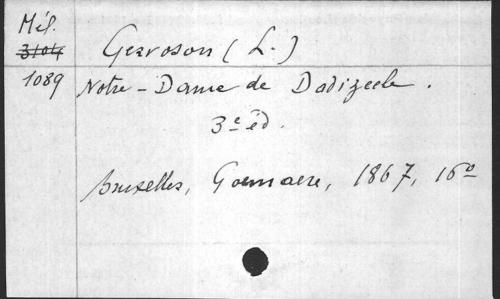 Mél.
3104
Gervoson (L.)
1089
Notre-Dame de Dadizeele.
3e éd.
Bruxelles, Goemaere, 1867, 16o